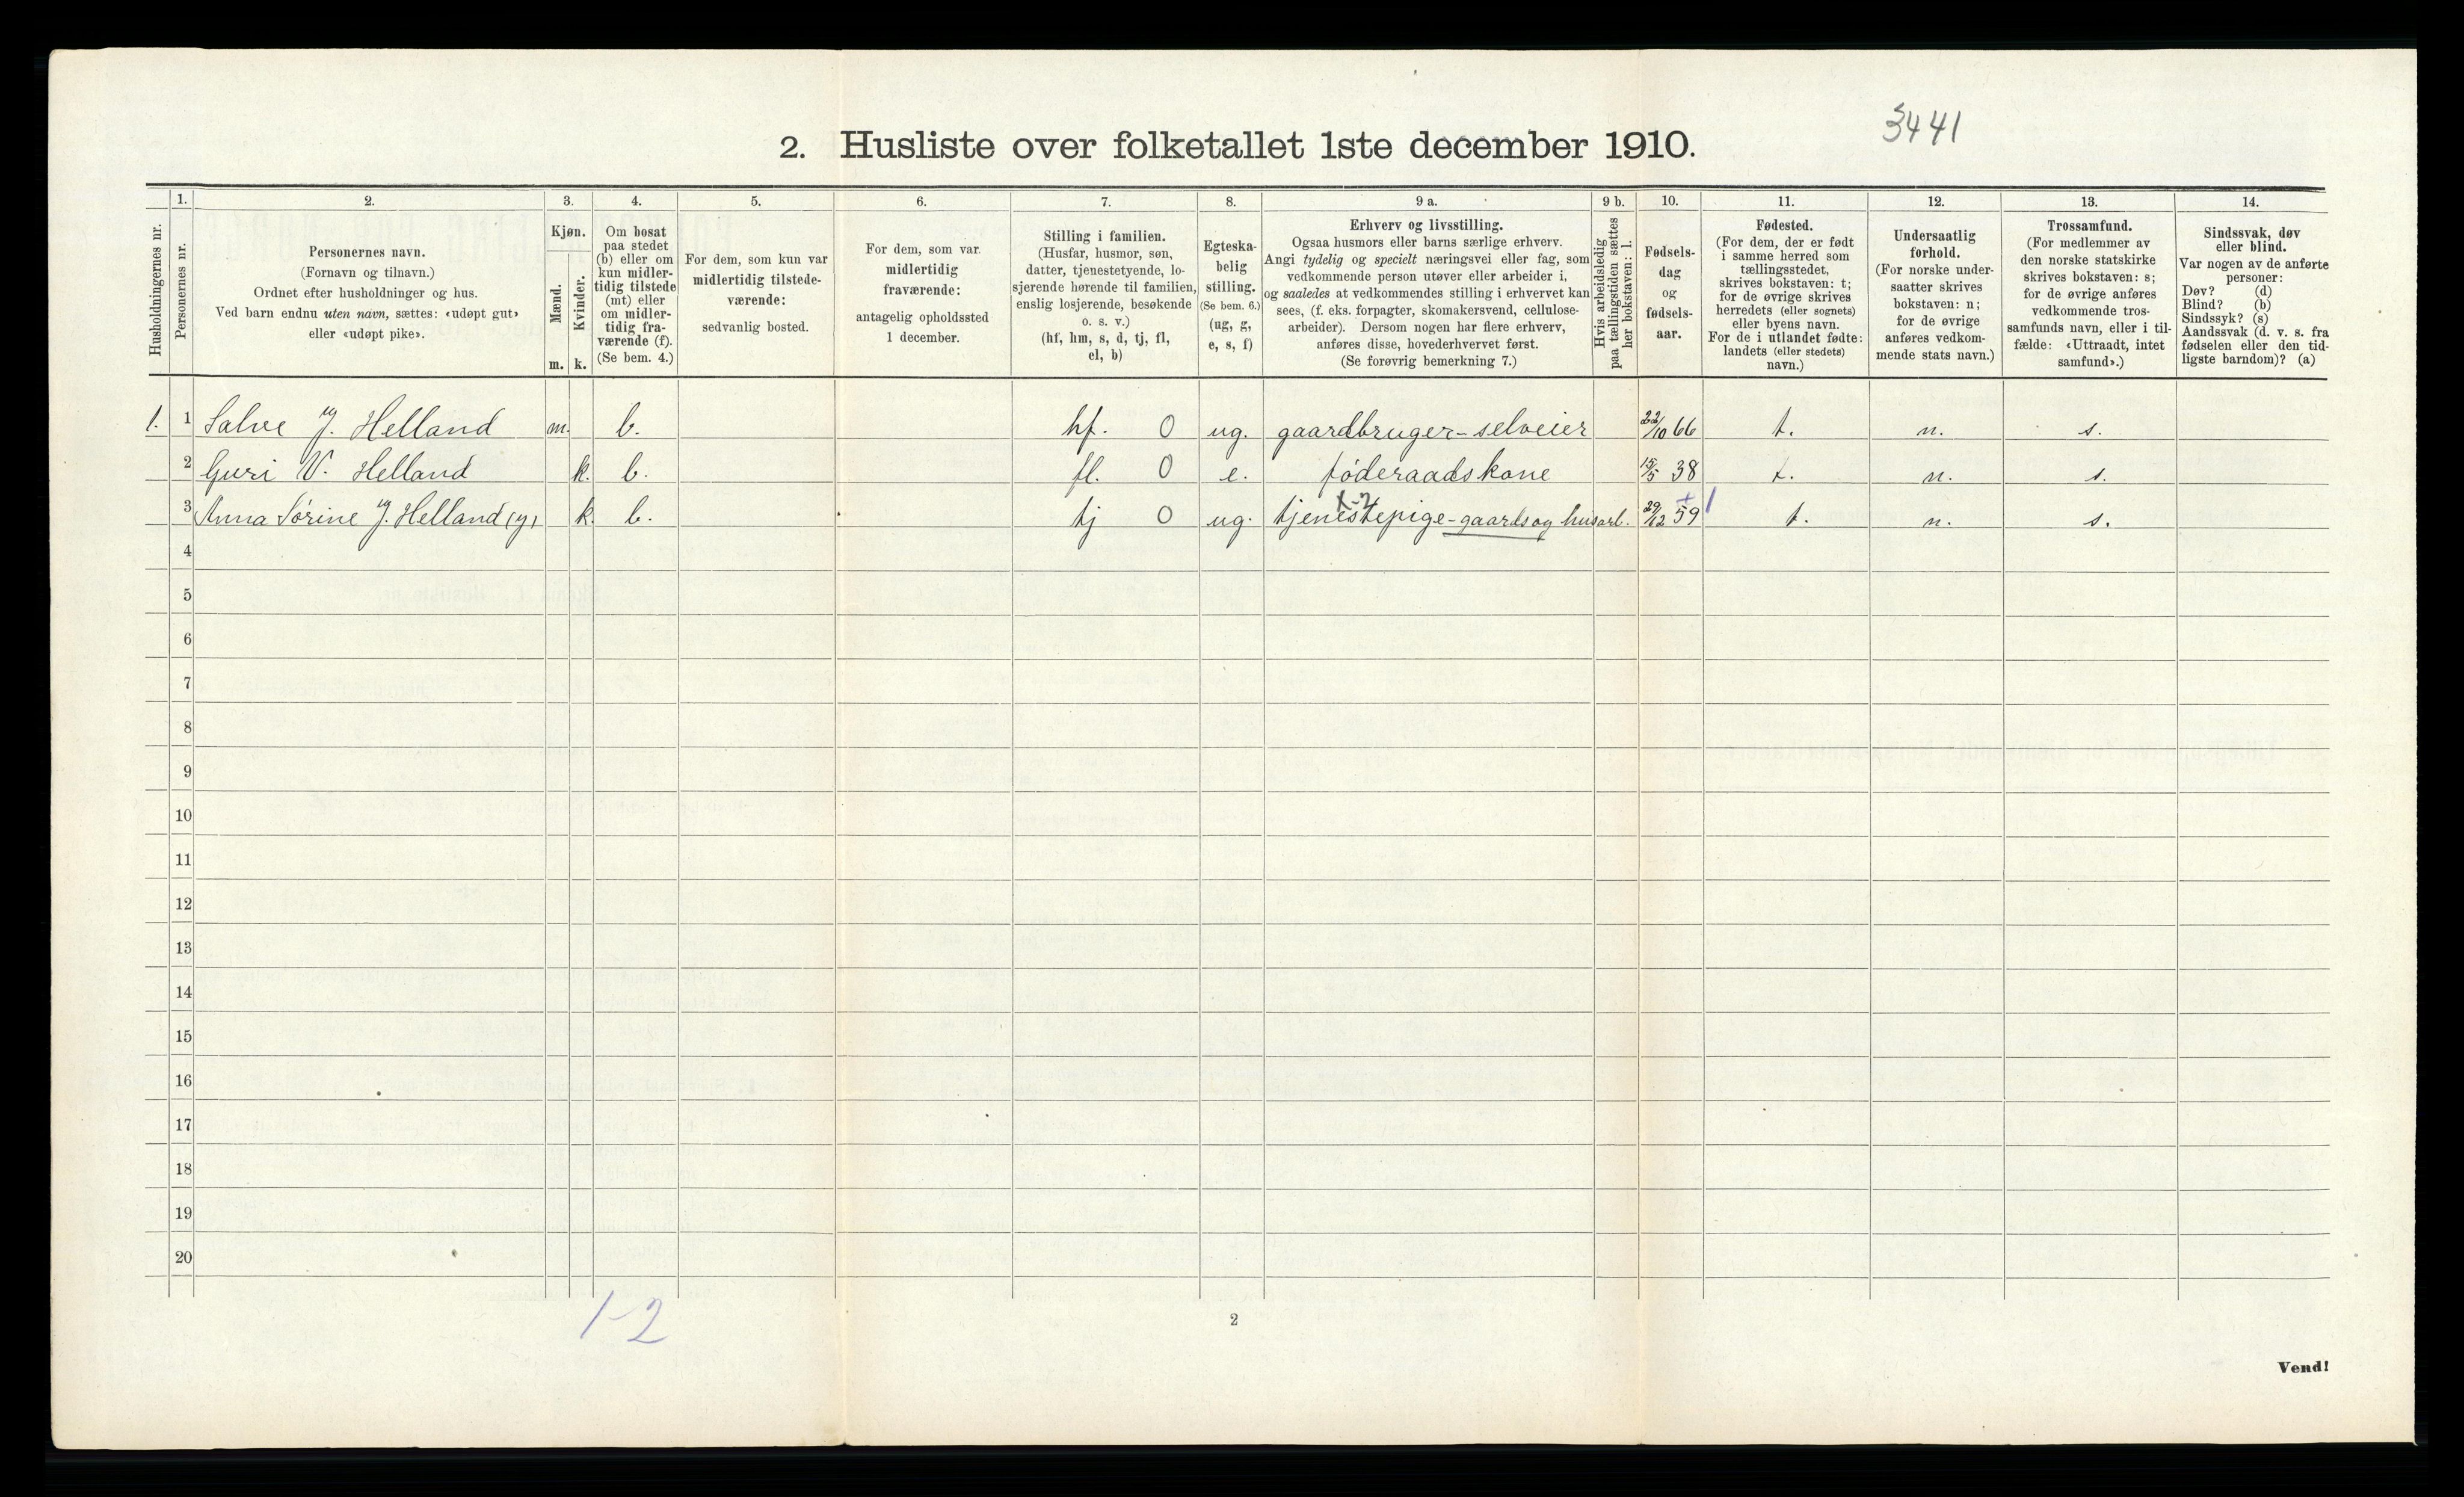 3441
2. Husliste over folketallet 1ste december 1910.
Husholdningernes nr.
1.
Personernes nr.
2.
Personernes navn.
(Fornavn og tilnavn.)
Ordnet efter husholdninger og hus.
Ved barn endnu uten navn, sættes: «udøpt gut»
eller «udøpt pike».
3.
Kjøn.
Mænd.
Kvinder.
m. k.
4.
Om bosat
paa stedet
(b) eller om
kun midler-
tidig tilstede
(mt) eller
om midler-
tidig fra-
værende (f).
(Se bem. 4.)
5.
For dem, som kun var
midlertidig tilstede-
værende:
sedvanlig bosted.
6.
For dem, som var
midlertidig
fraværende:
antagelig opholdssted
1 december.
7.
Stilling i familien.
(Husfar, husmor, søn,
datter, tjenestetyende, lo-
sjerende hørende til familien,
enslig losjerende, besøkende
o. s. v.)
(hf, hm, s, d, tj, fl,
el, b)
8.
Egteska-
belig
stilling.
(Se bem. 6.)
(ug, g,
e, s, f)
9 a.
Erhverv og livsstilling.
Ogsaa husmors eller barns særlige erhverv.
Angi tydelig og specielt næringsvei eller fag, som
vedkommende person utøver eller arbeider i,
og saaledes at vedkommendes stilling i erhvervet kan
sees, (f. eks. forpagter, skomakersvend, cellulose-
arbeider). Dersom nogen har flere erhverv,
anføres disse, hovederhvervet først.
(Se forøvrig bemerkning 7.)
9 b.
Hvis arbeidsledig
paa tællingstiden sættes
her bokstaven: l.
10.
Fødsels-
dag
og
fødsels-
aar.
11.
Fødested.
(For dem, der er født
i samme herred som
tællingsstedet,
skrives bokstaven: t;
for de øvrige skrives
herredets (eller sognets)
eller byens navn.
For de i utlandet fødte:
landets (eller stedets)
navn.)
12.
Undersaatlig
forhold.
(For norske under-
saatter skrives
bokstaven: n;
for de øvrige
anføres vedkom-
mende stats navn.)
13.
Trossamfund.
(For medlemmer av
den norske statskirke
skrives bokstaven: s;
for de øvrige anføres
vedkommende tros-
samfunds navn, eller i til-
fælde: «Uttraadt, intet
samfund».)
14.
Sindssvak, døv
eller blind.
Var nogen av de anførte
personer:
Døv? (d)
Blind? (b)
Sindssyk? (s)
Aandssvak (d. v. s. fra
fødselen eller den tid-
ligste barndom)? (a)
1. 1 Salve J. Helland m. b. hf. 0 ug. gaardbruger-selveier 22/10 66 t. n. s.
2 Guri V. Helland k. b. fl. 0 e. føderaadskone 15/5 38 t. n. s.
3 Anna Sørine J. Helland (y) k. b. tj 0 ug. tjenestepige-gaards og husarb. 29/12 59 t. n. s.
4
5
6
7
8
9
10
11
12
13
14
15
16
17
18
19
20
1-2
2
Vend!